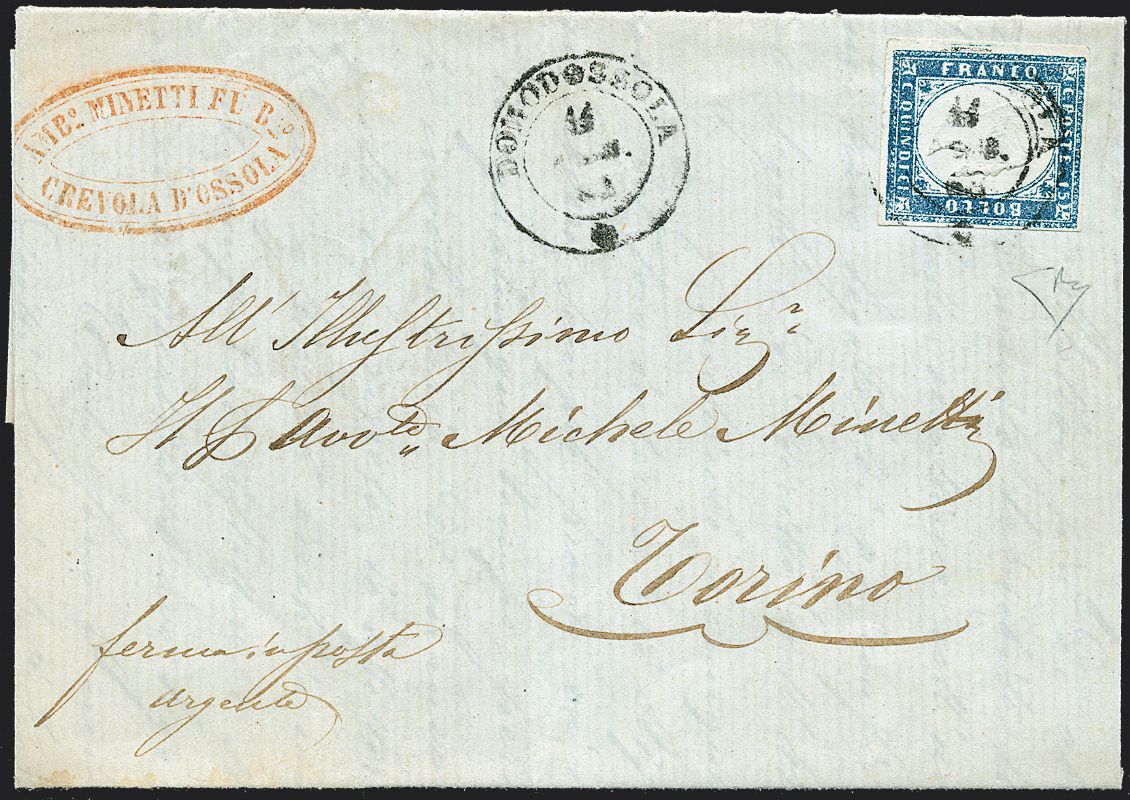 AMB.º MINETTI FÙ B.io
CREVOLA D'OSSOLA
DOMODOSSOLA
FRANCO
C. POSTE 15
BOLLO
C. QUINDICI
All' Illustrissimo Sig.r
Il Sig. Avv.to Michele Minetti
Torino
ferma in posta
urgente